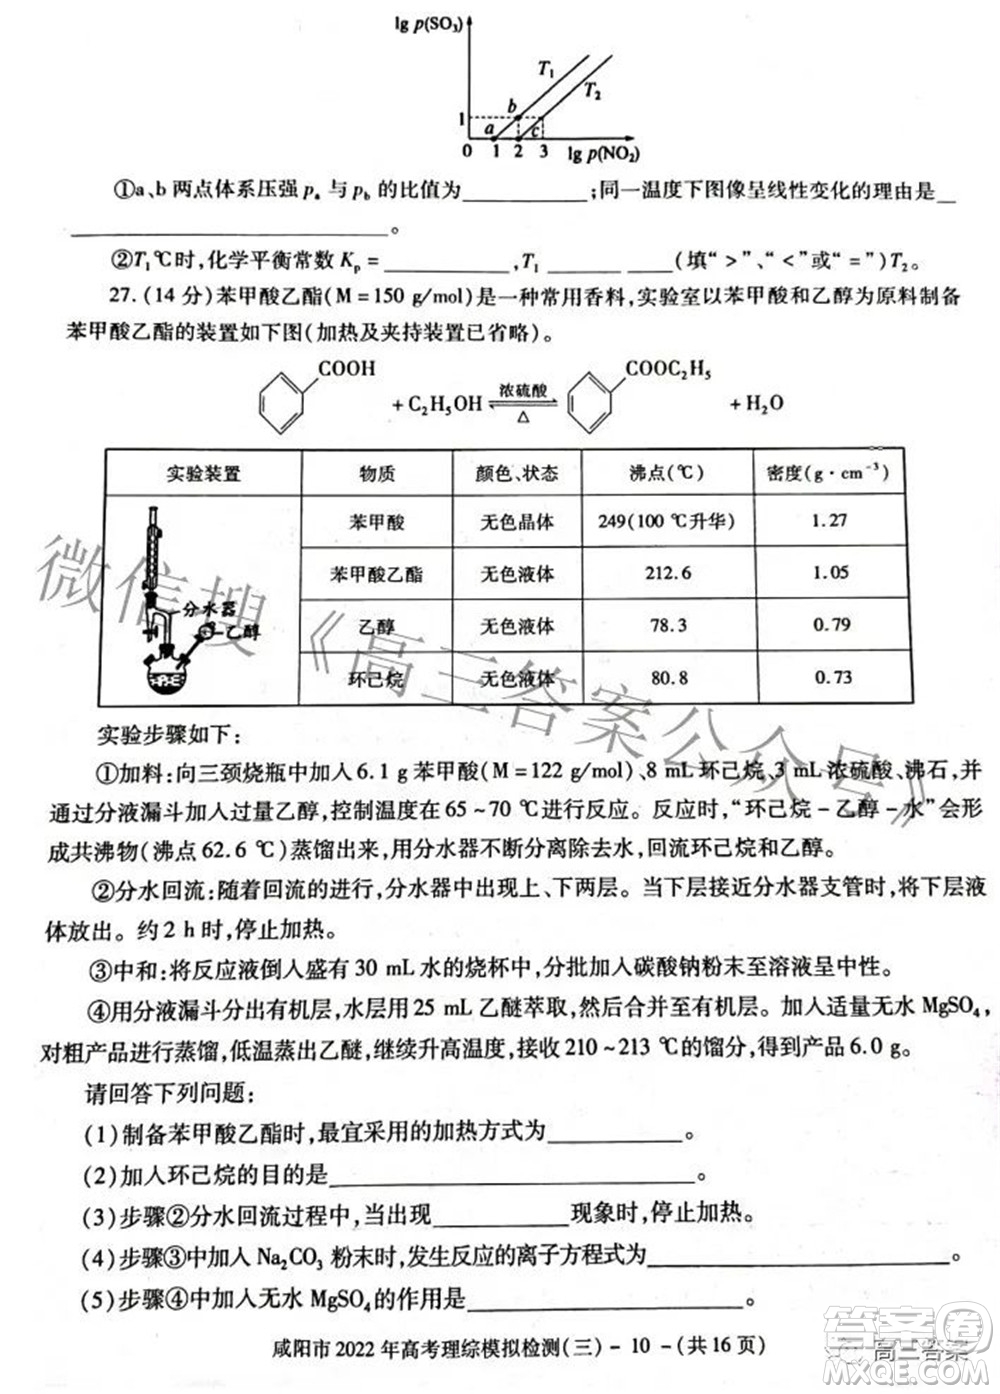 lg p(SO₃)
T₁
T₂
b
1
a
c
0 1 2 3 lg p(NO₂)
①a、b 两点体系压强 pₐ 与 p_b 的比值为__________;同一温度下图像呈线性变化的理由是__
__________________________。
②T₁℃时,化学平衡常数 Kₚ = __________,T₁ ____ ____(填“>”、“<”或“=”)T₂。
27.(14 分)苯甲酸乙酯(M=150 g/mol)是一种常用香料,实验室以苯甲酸和乙醇为原料制备
苯甲酸乙酯的装置如下图(加热及夹持装置已省略)。
COOH + C₂H₅OH ⇌ 浓硫酸 △ COOC₂H₅ + H₂O
实验装置 物质 颜色、状态 沸点(℃) 密度(g·cm⁻³)
苯甲酸 无色晶体 249(100 ℃升华) 1.27
苯甲酸乙酯 无色液体 212.6 1.05
分水器
乙醇
乙醇 无色液体 78.3 0.79
环己烷 无色液体 80.8 0.73
实验步骤如下:
①加料:向三颈烧瓶中加入 6.1 g 苯甲酸(M=122 g/mol)、8 mL 环己烷、3 mL 浓硫酸、沸石,并
通过分液漏斗加入过量乙醇,控制温度在 65~70 ℃进行反应。反应时,“环己烷-乙醇-水”会形
成共沸物(沸点 62.6 ℃)蒸馏出来,用分水器不断分离除去水,回流环己烷和乙醇。
②分水回流:随着回流的进行,分水器中出现上、下两层。当下层接近分水器支管时,将下层液
体放出。约 2 h 时,停止加热。
③中和:将反应液倒入盛有 30 mL 水的烧杯中,分批加入碳酸钠粉末至溶液呈中性。
④用分液漏斗分出有机层,水层用 25 mL 乙醚萃取,然后合并至有机层。加入适量无水 MgSO₄,
对粗产品进行蒸馏,低温蒸出乙醚,继续升高温度,接收 210~213 ℃的馏分,得到产品 6.0 g。
请回答下列问题:
(1)制备苯甲酸乙酯时,最宜采用的加热方式为__________。
(2)加入环己烷的目的是__________________________
(3)步骤②分水回流过程中,当出现__________现象时,停止加热。
(4)步骤③中加入 Na₂CO₃ 粉末时,发生反应的离子方程式为__________________
(5)步骤④中加入无水 MgSO₄的作用是__________________
咸阳市 2022 年高考理综模拟检测(三)- 10 -(共16 页)
微信搜《高三答案公众号》
高三答案